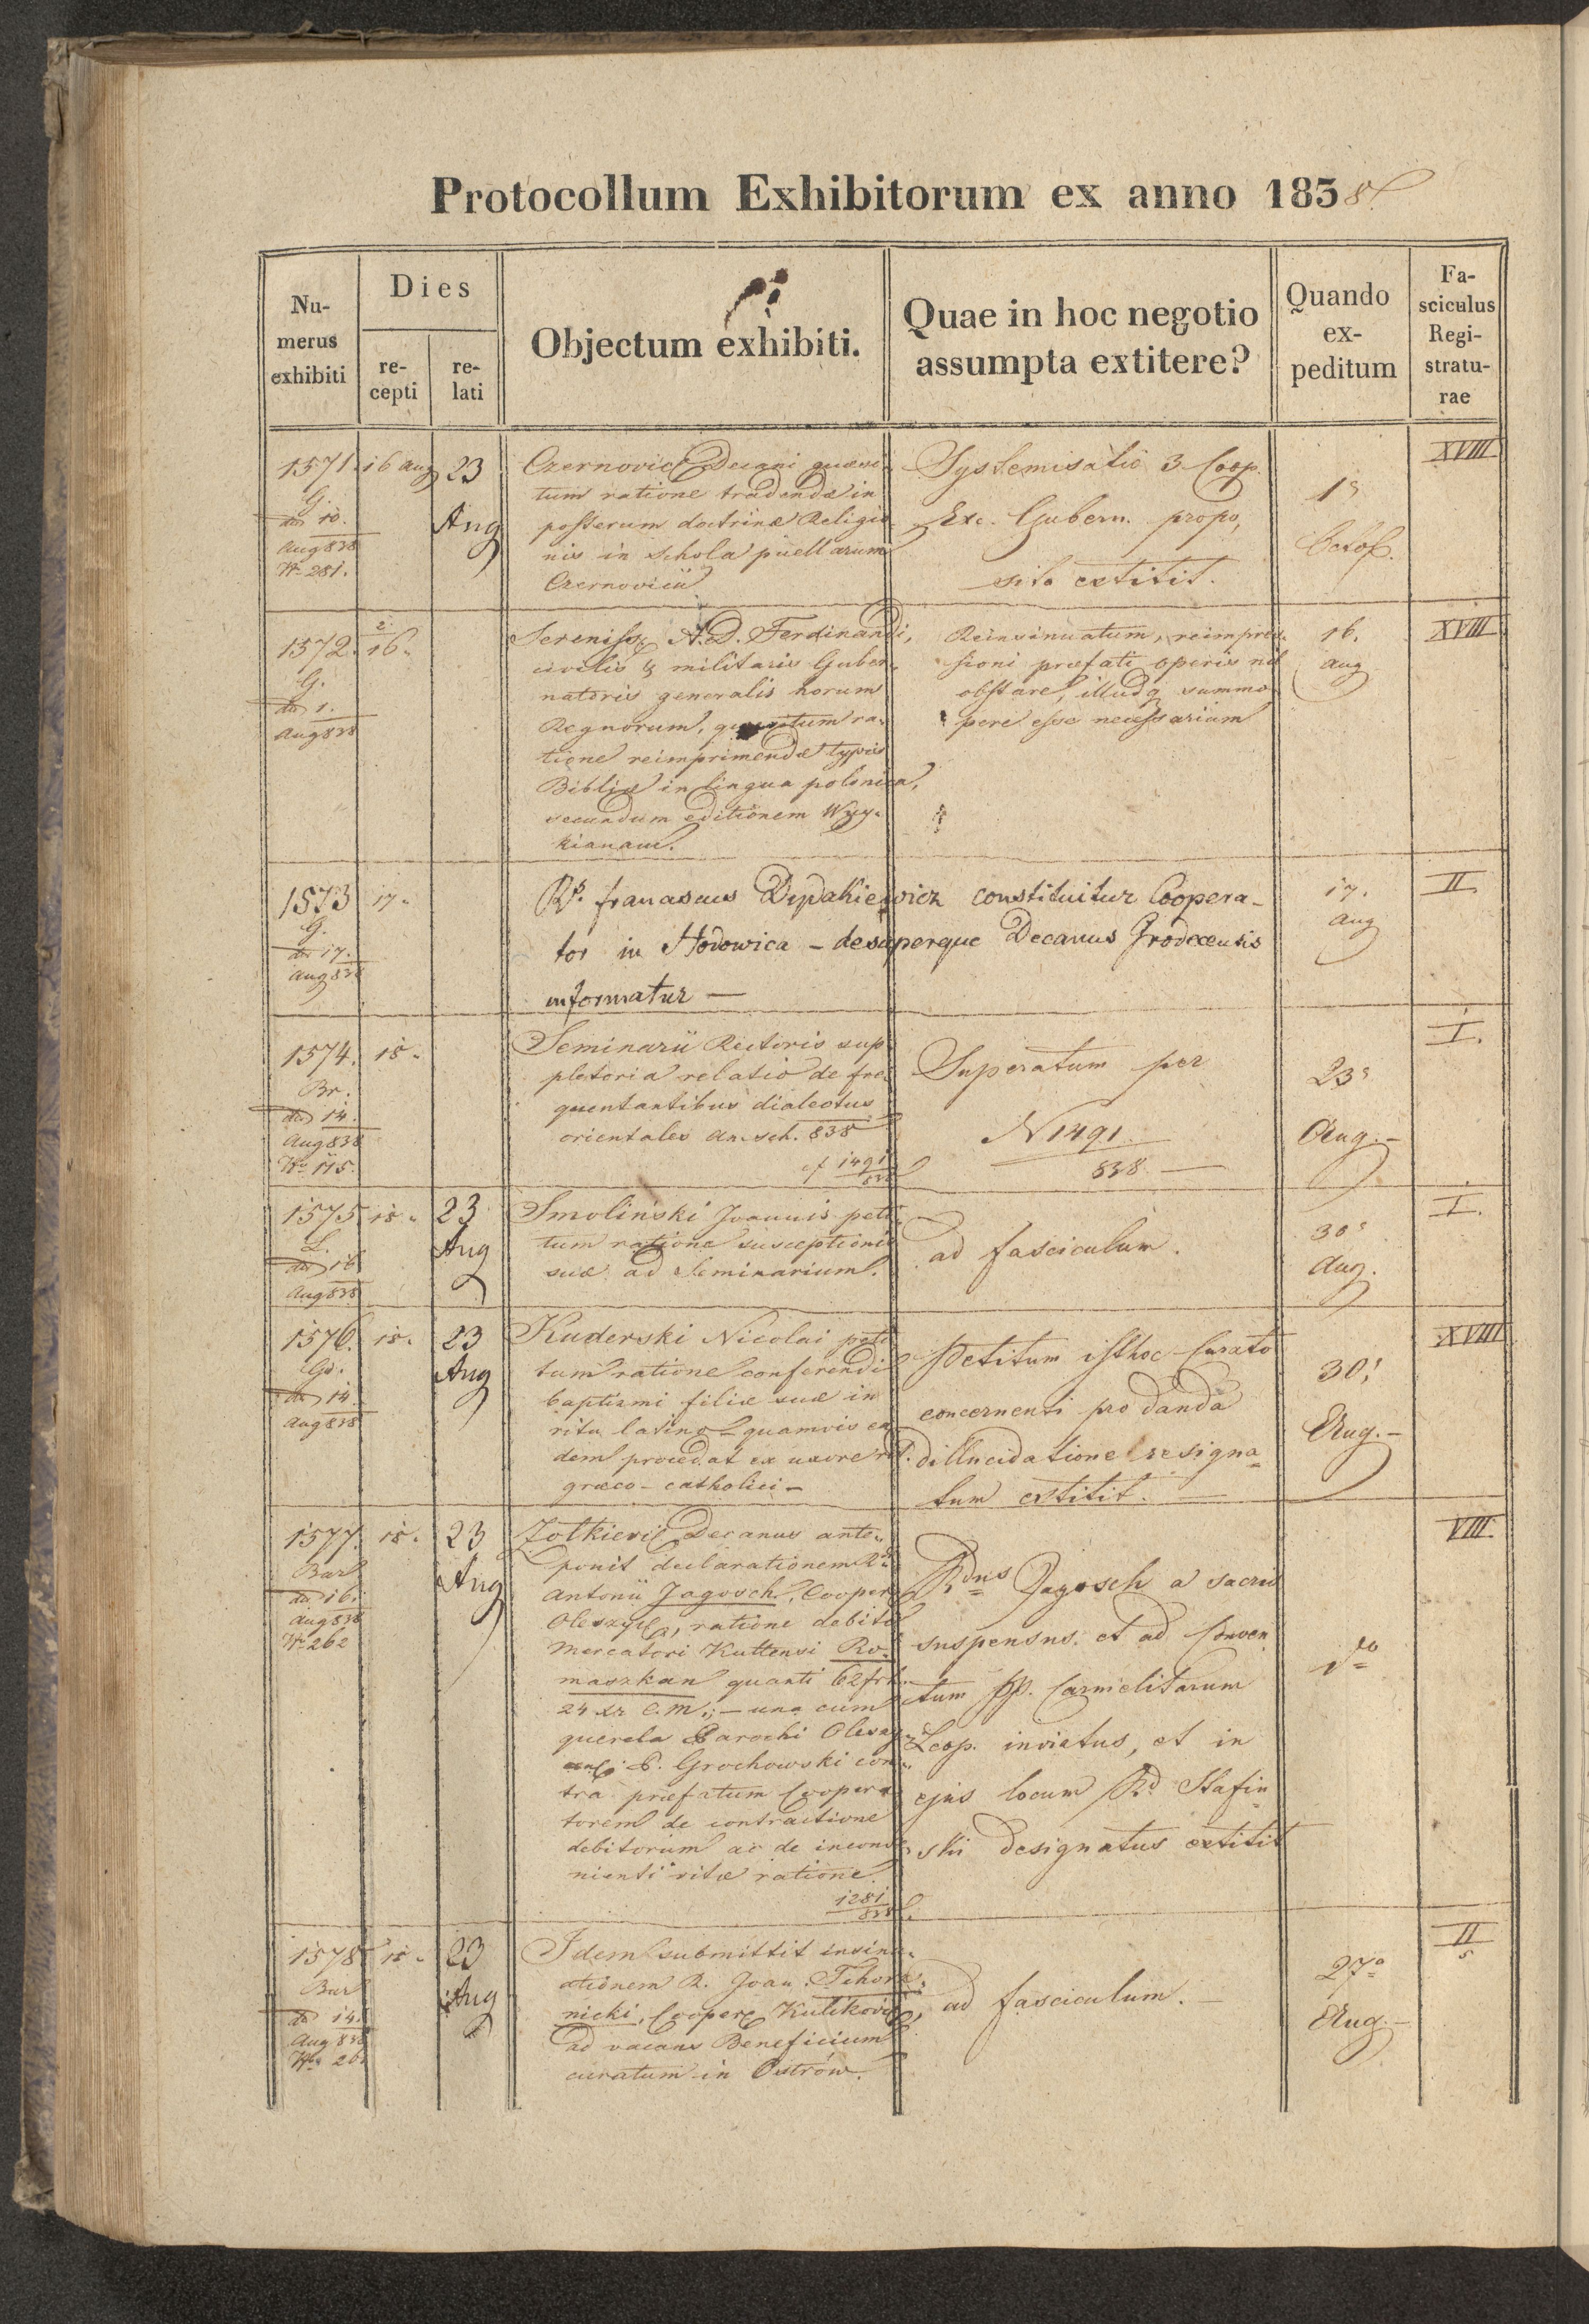 Protocollum Exhibitorum ex anno 1838.
Numerus exhibiti
Dies
recepti
relati
Objectum exhibiti.
Quae in hoc negotio
assumpta extitere?
Quando
ex-
peditum
Fa-
sciculus
Regi-
stratu-
rae
1571. 16 Aug 23 Aug
G.
dto 10.
Aug 838
No 281.
Czernovic Decani quaesi-
tum ratione tradendae in
posterum doctrinae Religio
nis in schola puellarum
Czernovicii
Systemisatio 3 Coop.
Exc. Gubern. propo,
sita extitit.
1a
Octob.
XVIII
1572. 16.
G.
dto 1.
Aug 838
Sereniss A.D. Ferdinandi,
civilis & militaris Guber-
natoris generalis horum
Regnorum, quaesitum ra-
tione reimprimendae typis
Bibliae in lingua polonica,
secundum editionem Wyy-
kianam.
Reinsinuatum, reimpres-
sioni praefati operis nil
obstare, illudq summo-
pere esse necessarium
16.
Aug
XVIII
1573 17.
G.
dto 17.
Aug 838
Rd. Franciscus Dydakiewicz constituitur Coopera-
tor in Hodowica – desuperque Decanus Grodecensis
informatur —
17.
Aug
II.
1574. 18.
Br.
dto 14.
Aug 838
No 175.
Seminarii Rectoris sup-
pletoria relatio de fre-
quentantibus dialectus
orientales an. sch. 838
cf 1491
838
Superatum per
N 1491
838 —
23a
Aug. –
I.
1575 18. 23 Aug
L.
dto 16
Aug 838
Smolinski Joannis peti-
tum ratione susceptionis
suae ad Seminarium.
ad fasciculum.
30a
Aug.
I.
1576. 18. 23 Aug
Gd.
dto 14
Aug 838
Kuderski Nicolai peti-
tum ratione conferendi
baptismi filiae suae in
ritu latino – quamvis ea
dem procedat ex uxore rit.
graeco-catholici –
Petitum isthoc Curato
concernenti pro danda
dillucidatione resigna-
tum extitit. —
30a
Aug. –
XVIII
1577. 18. 23 Aug
Bar
dto 16.
Aug 838
No 262
Zolkievi Decanus ante-
ponit declarationem Rdi
Antonii Jagosch, Cooper
Oleszyc, ratione debiti
Mercatori Kuttensi Ro-
maszkan quanti 62 frh
24 xr C.M.; – una cum
querela Parochi Oleszy-
P. Grochowski con-
tra praefatum Coopera
torem de contractione
debitorum ac de inconve-
nienti vitae ratione.
1281
838
Rdns Jagosch a sacris
suspensus. et ad Conven
tum PP. Carmelitarum
Leop. inviatus, et in
ejus locum Rd Stafin-
ski designatus extitit
dto
VIII.
1578 18. 23 Aug
Bar
dto 14.
Aug 838
No 261
Idem submittit insinu-
ationem R. Joan. Tchorz-
nicki, Cooper Kulikovi,
ad vacans Beneficium
curatum in Ostrów.
ad fasciculum. –
27a
Aug. –
II
5